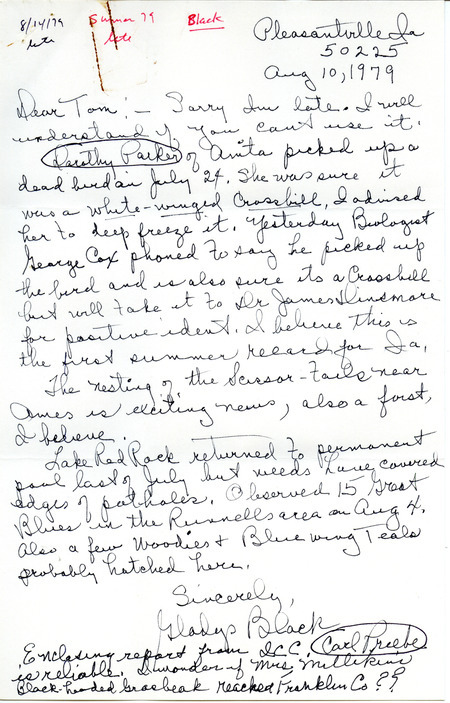 8/14/79 Summer 79 Black Pleasantville Ia
note note 50225
Aug 10, 1979
Dear Tom: – Sorry Im late. I will
understand if you can't use it.
Dorothy Parker of Anita picked up a
dead bird on July 24. She was sure it
was a white-winged Crossbill, I advised
her to deep freeze it. Yesterday Biologist
George Cox phoned to say he picked up
the bird and is also sure its a Crossbill
but will take it to Dr James Dinsmore
for positive ident. I believe this is
the first summer record for Ia.
The nesting of the Scissor-Tails near
Ames is exciting news, also a first,
I believe.
Lake Red Rock returned to permanent
pool last of July but needs have covered
edges of potholes. Observed 15 Great
Blues in the Runnells area on Aug 4.
Also a few Woodies & Blue wing Teals
probably hatched here.
Sincerely,
Gladys Black
Enclosing report from I.C.C. Carl Priebe
is reliable. I wonder if Mrs Millikins
Black-headed Grosbeak reached Franklin Co??